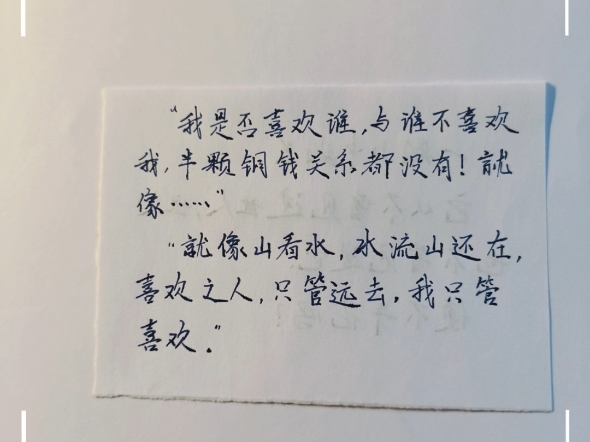 “我是否喜欢谁,与谁不喜欢
我,半颗铜钱关系都没有!就
像……”
“就像山看水,水流山还在,
喜欢之人,只管远去,我只管
喜欢。”